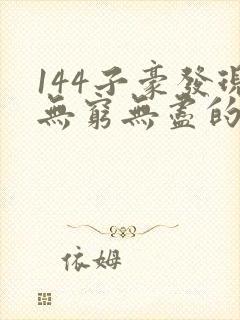 144子豪發現
無窮無盡的
依姆